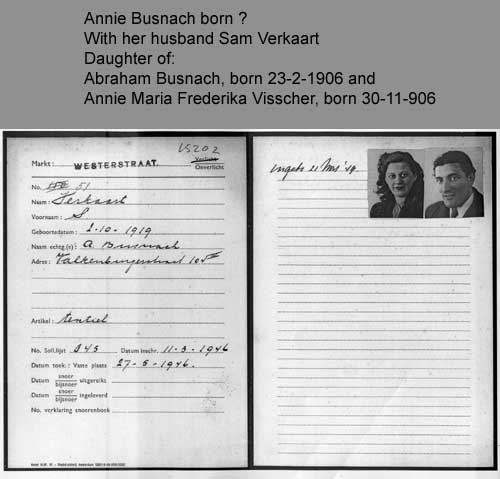 Annie Busnach born ?
With her husband Sam Verkaart
Daughter of:
Abraham Busnach, born 23-2-1906 and
Annie Maria Frederika Visscher, born 30-11-906
VS202
Markt: WESTERSTRAAT. Voorlste Onverlicht
No. 51
Naam: Verkaart
Voornaam: S
Geboortedatum: 2-10-1919
Naam echtg.(e): A Busnach
Adres: Valkenburgerstraat
Artikel: textiel
No. Soll.lijst 845 Datum inschr. 11-3-1946
Datum toek.: Vaste plaats 27-5-1946.
Datum snoer bijsnoer uitgereikt
Datum snoer bijsnoer ingeleverd
No. verklaring snoerenboek
21 '49